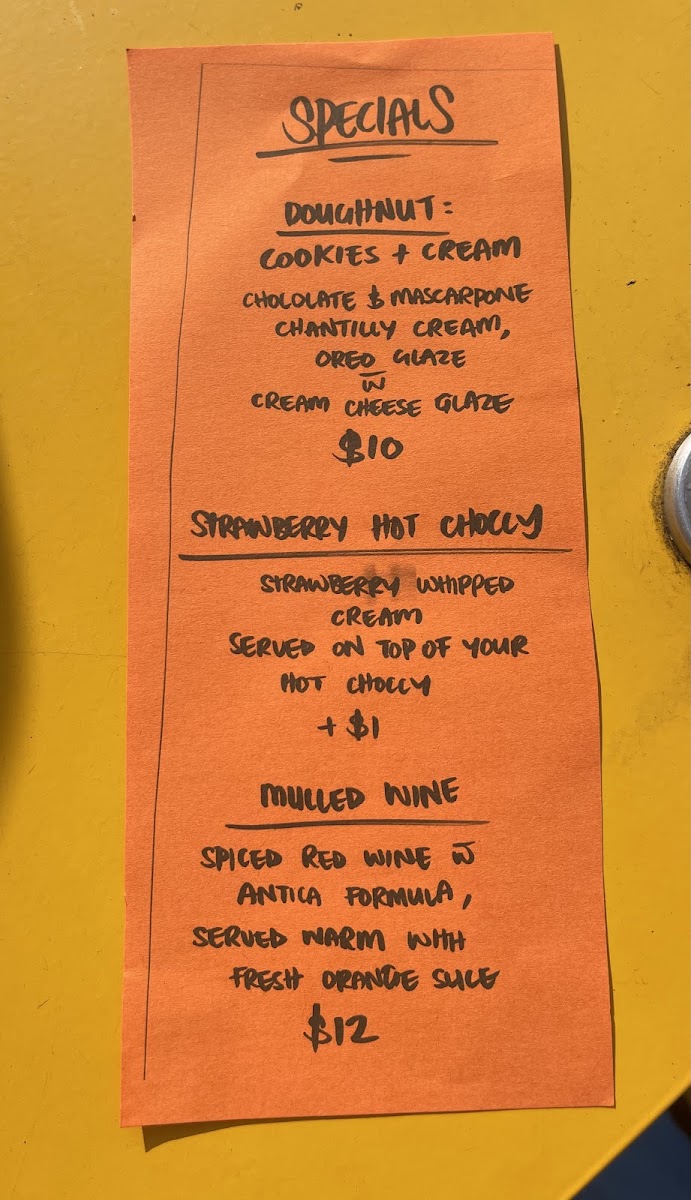 SPECIALS
DOUGHNUT:
COOKIES + CREAM
CHOLOLATE & MASCARPONE
CHANTILLY CREAM,
OREO GLAZE
W̅
CREAM CHEESE GLAZE
$10
STRAWBERRY HOT CHOCCY
STRAWBERRY WHIPPED
CREAM
SERVED ON TOP OF YOUR
HOT CHOCCY
+ $1
MULLED WINE
SPICED RED WINE W̅
ANTICA FORMULA,
SERVED WARM WITH
FRESH ORANGE SLICE
$12